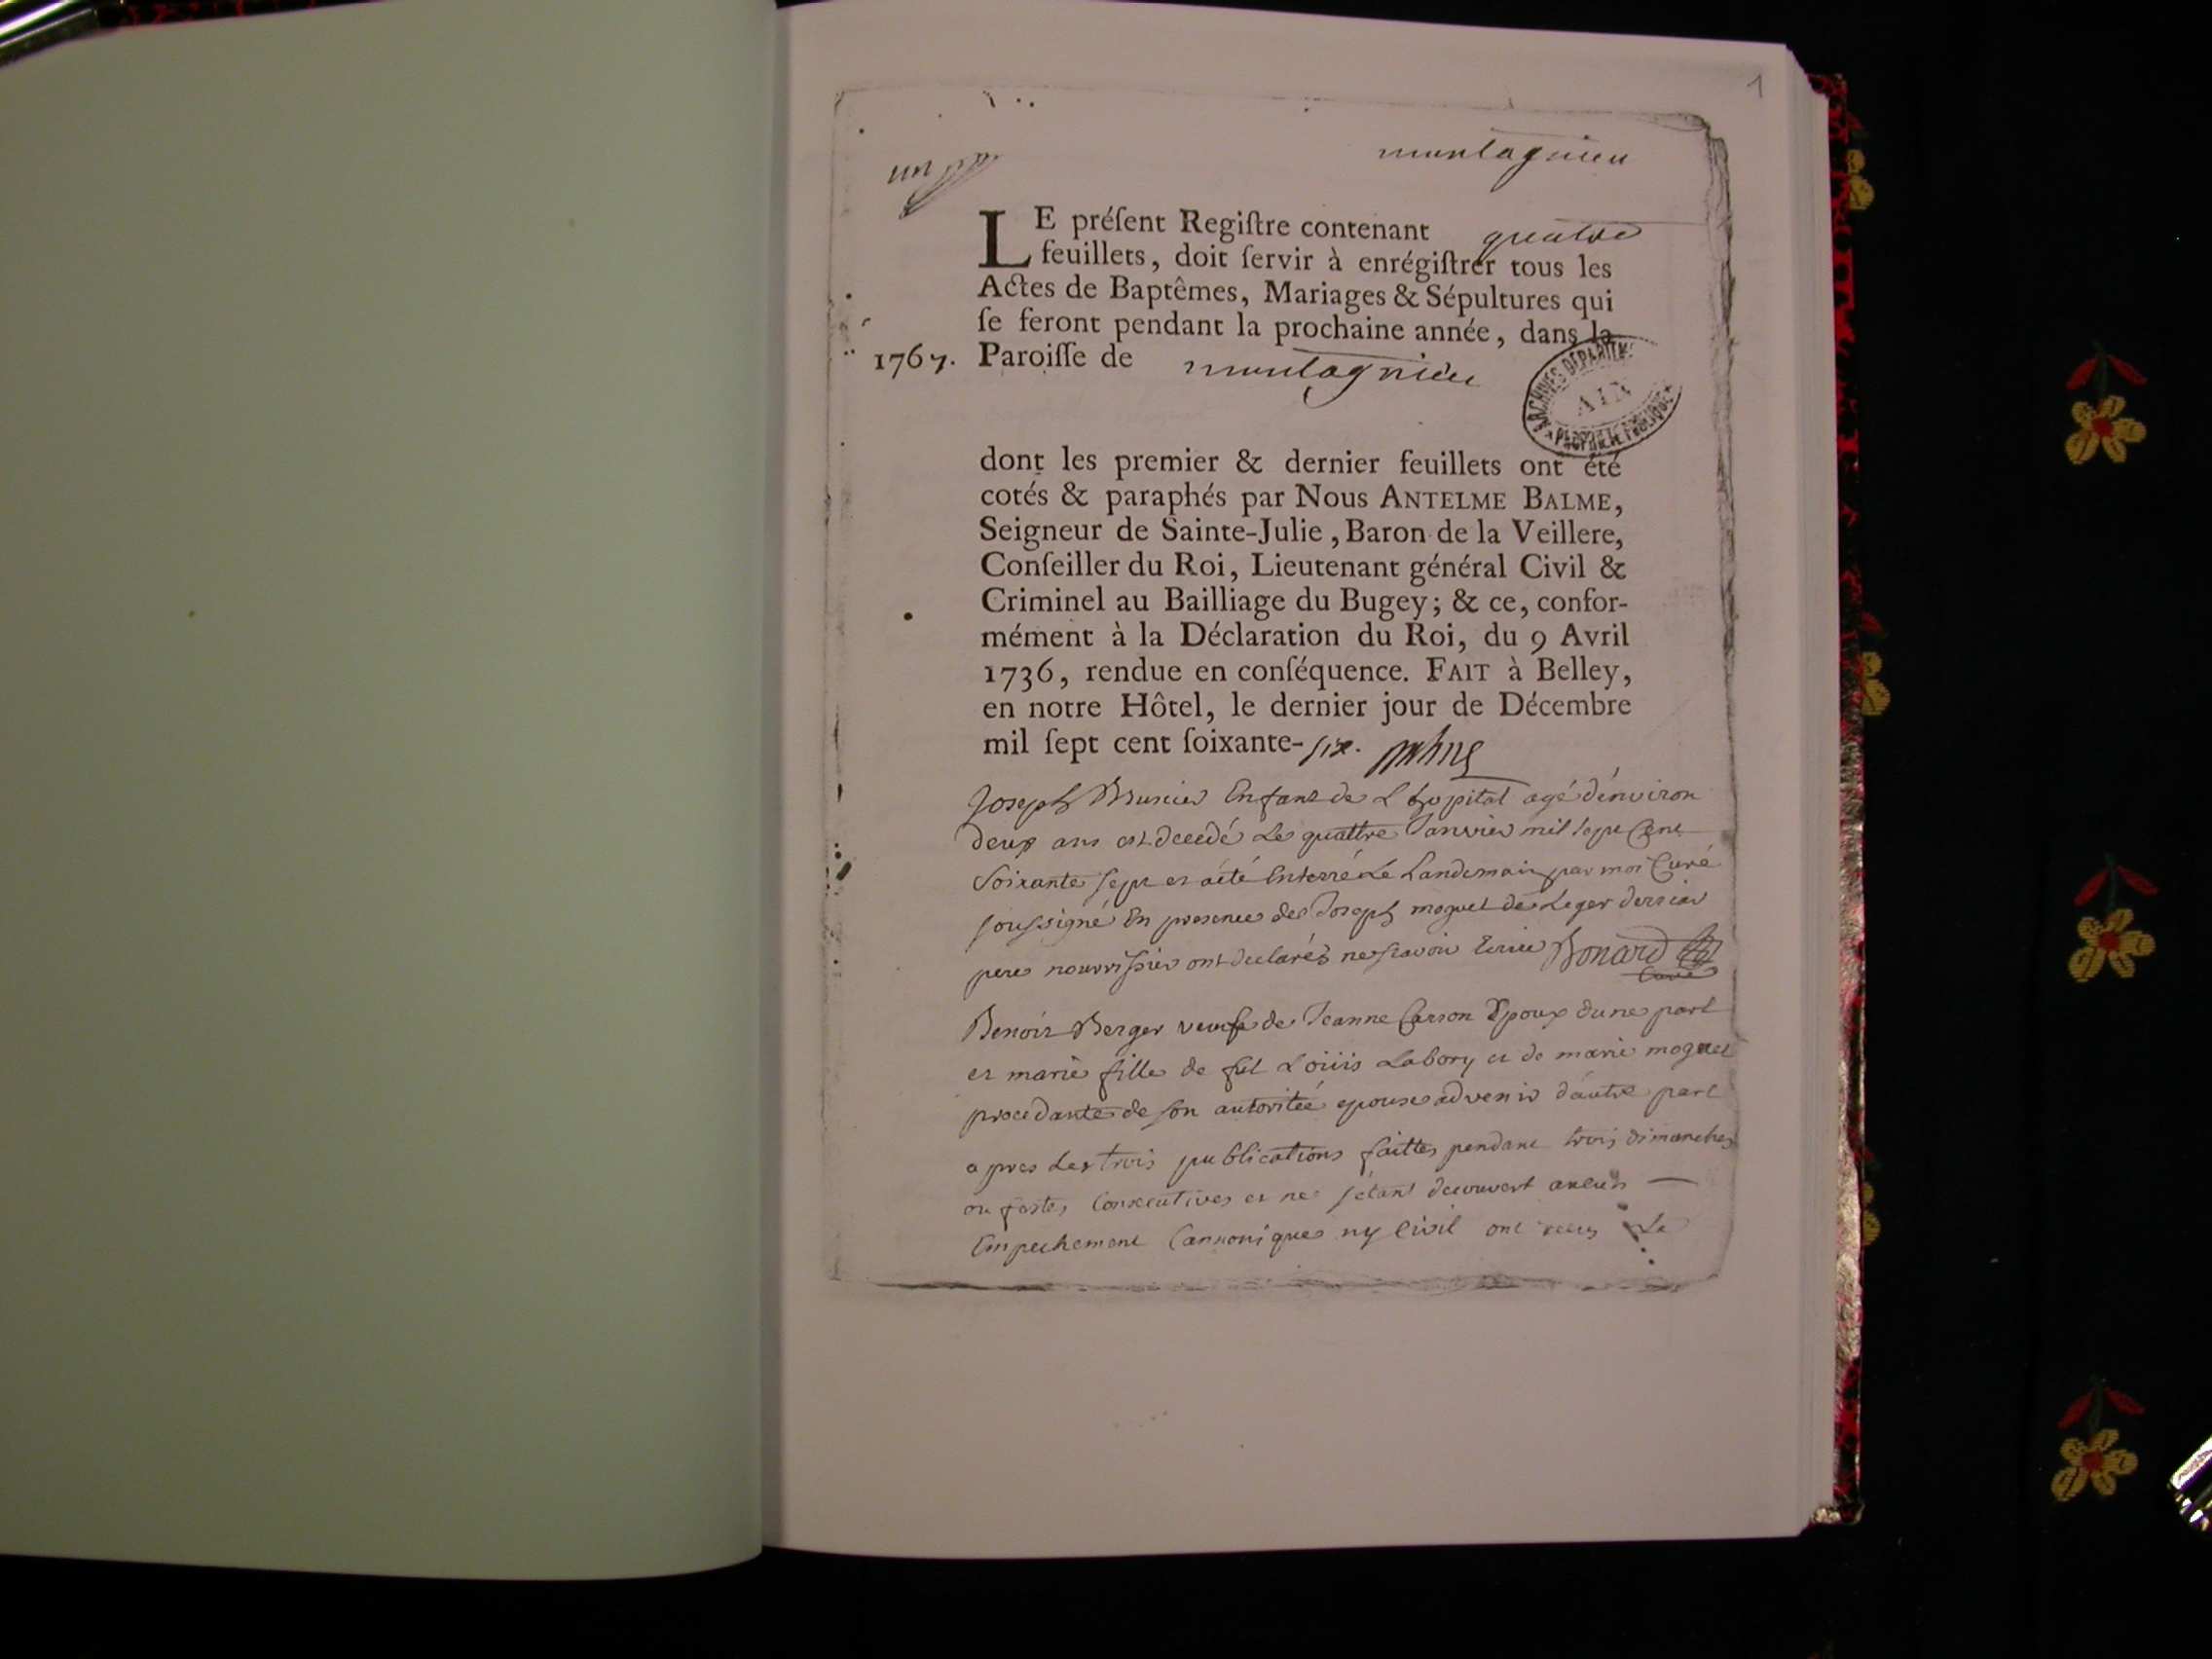 1
un
montagnieu
LE préſent Regiſtre contenant quatre
feuillets, doit ſervir à enrégiſtrer tous les
Actes de Baptêmes, Mariages & Sépultures qui
ſe feront pendant la prochaine année, dans la
1767. Paroiſſe de montagnieu
ARCHIVES DEPARTEM
AIN
dont les premier & dernier feuillets ont été
cotés & paraphés par Nous ANTELME BALME,
Seigneur de Sainte-Julie, Baron de la Veillere,
Conſeiller du Roi, Lieutenant général Civil &
Criminel au Bailliage du Bugey; & ce, confor-
mément à la Déclaration du Roi, du 9 Avril
1736, rendue en conſéquence. FAIT à Belley,
en notre Hôtel, le dernier jour de Décembre
mil ſept cent ſoixante-six. Balme
Joseph Enfant de L hopital agé d'environ
deux ans est decedé Le quattre Janvier mil sept Cent
Soixante sept et a été Enterré Le Landemain par moi Curé
soussigné En presence de Joseph moguet de Leger
pere nourrissier ont declarés ne scavoir Ecrire Bonard
Curé
Benoit Berger veufe de Jeanne Carson Epoux dune part
et marie fille de fut Loüis Labory et de marie moguet
procedante de son autoritée epouse advenir dautre part
apres Les trois publications faittes pendant trois dimanches
ou festes Consecutives et ne sétant decouvert aucun
Empechement Cannonique ny Civil ont receu La